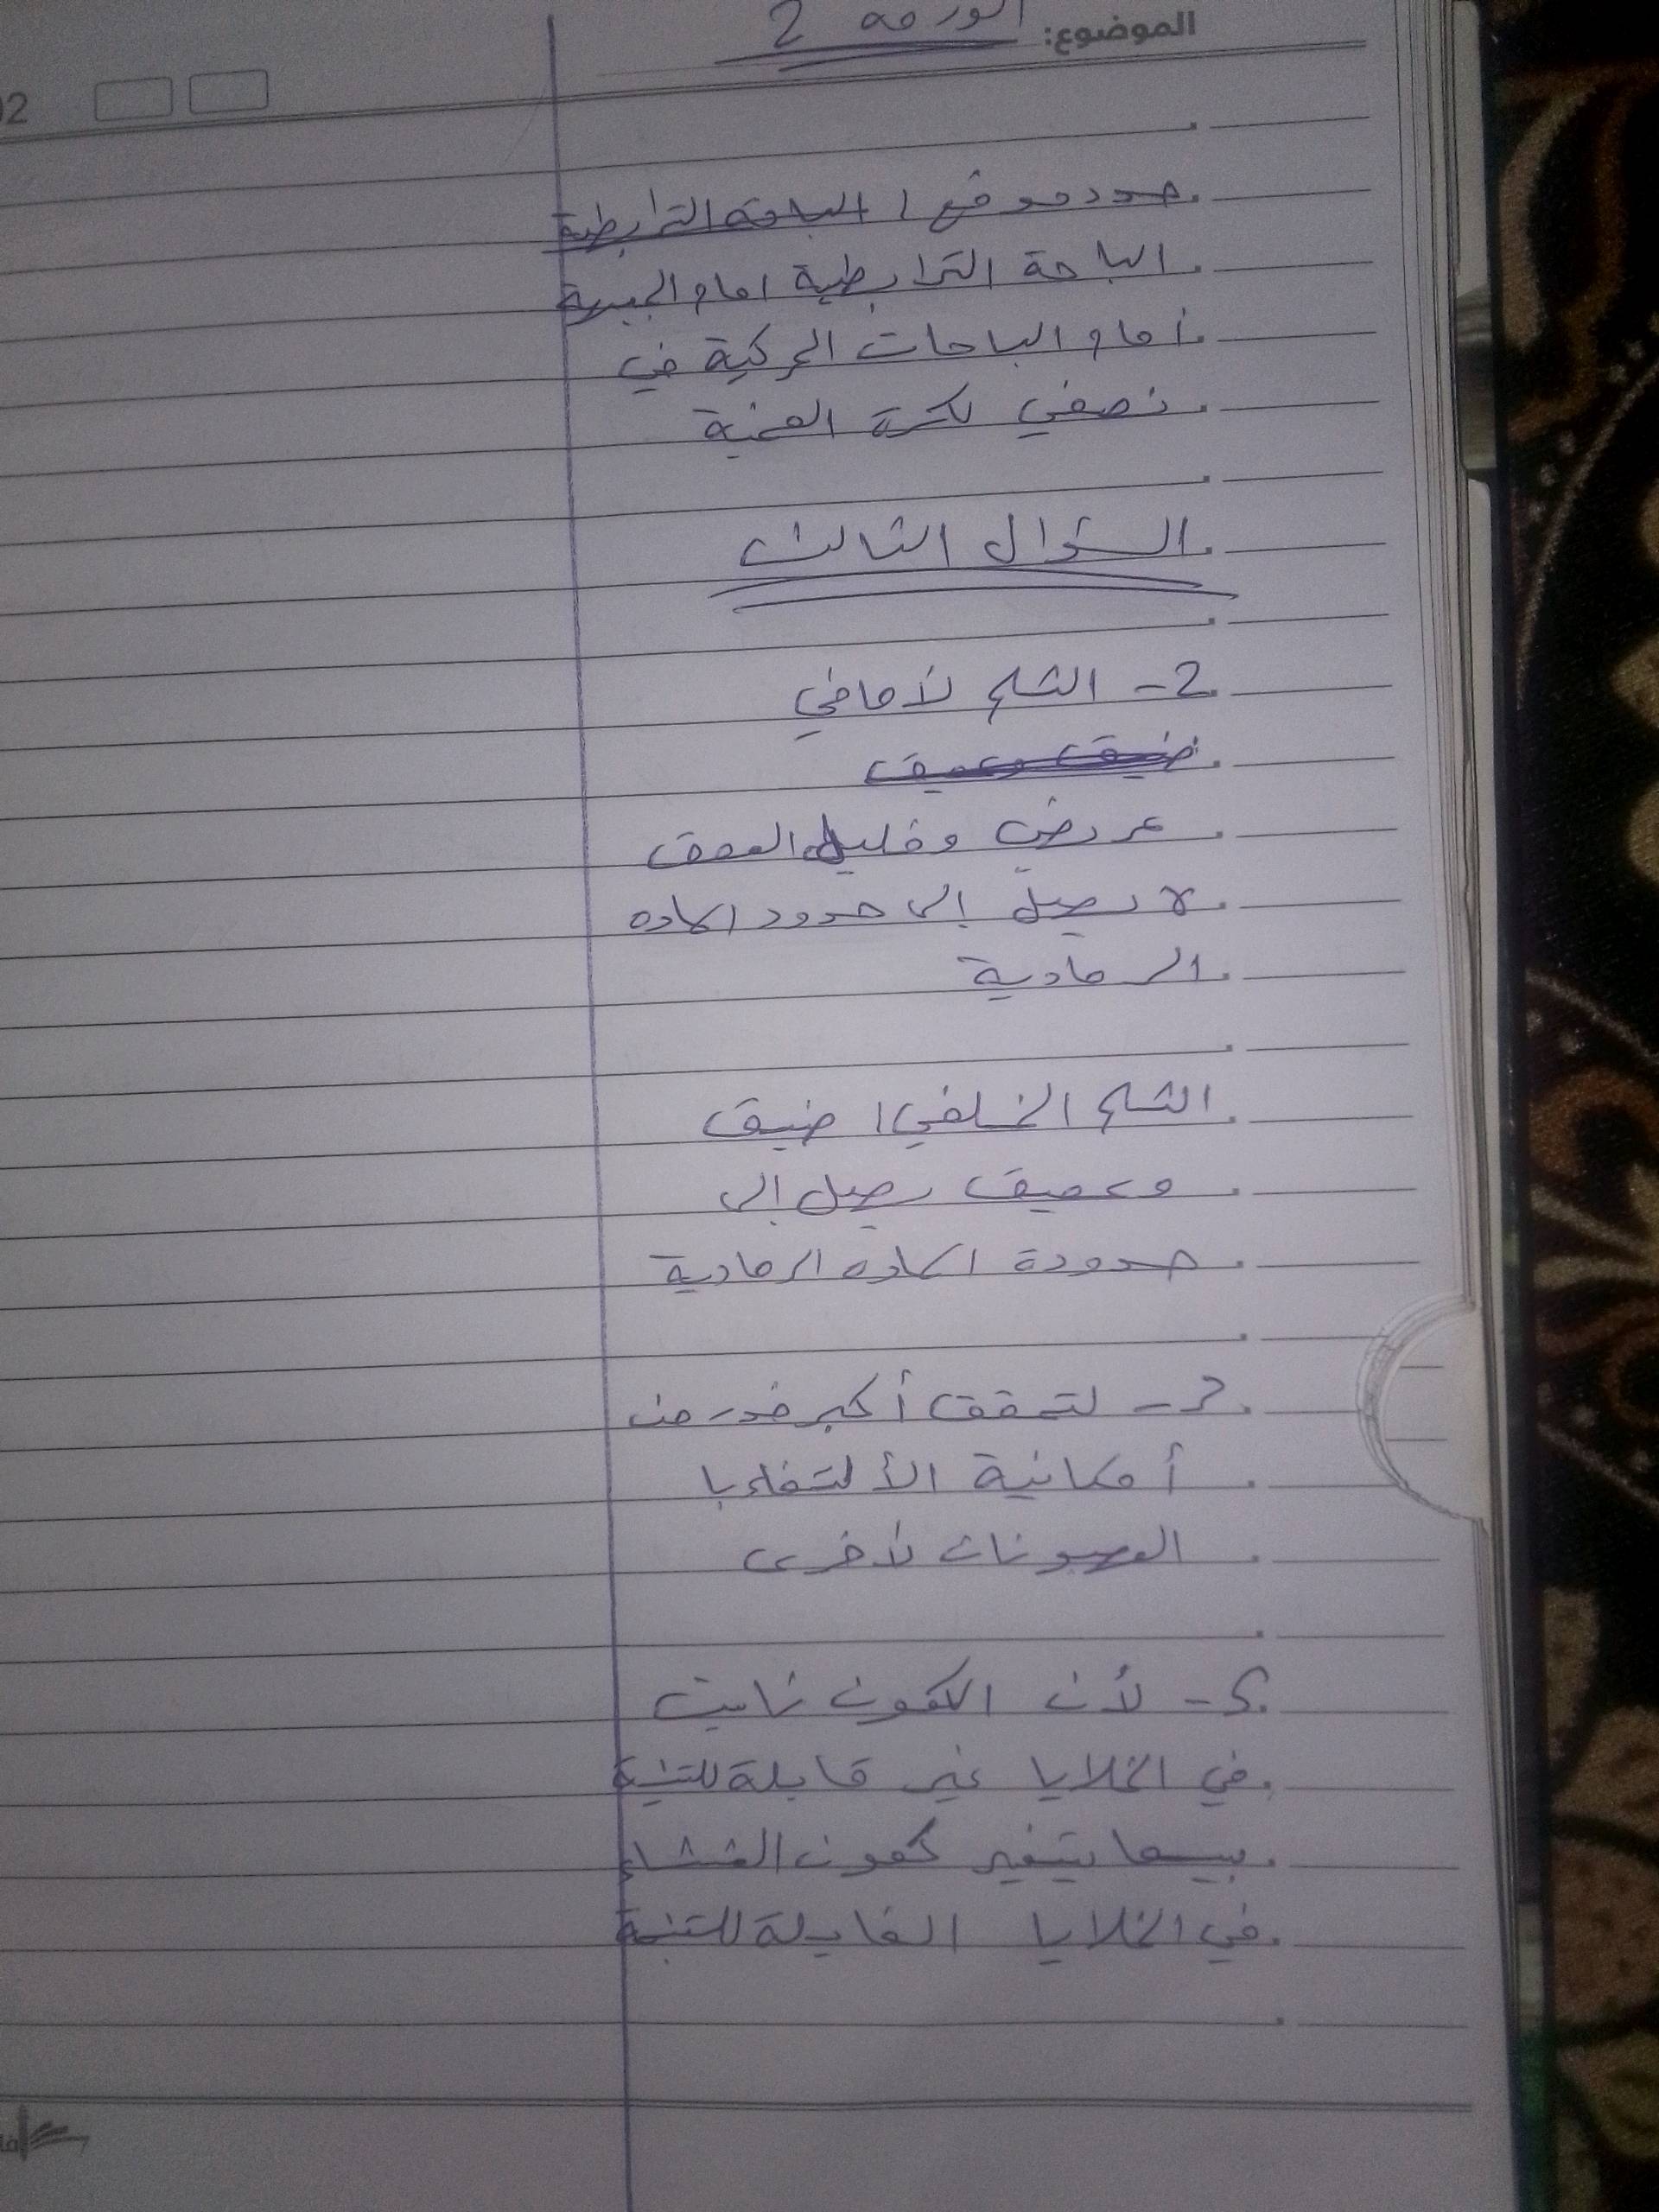 الموضوع: الورقة 2
02
حدد موقع / الباحة الترابطية
الباحة الترابطية امام الجبهية
أمام الباحات الحركية في
نصفي لكرة المخية
السؤال الثالث
2- الثلم لأمامي
ضيق وعميق
عريض وقليل العمق
لا يصل إلى حدود المادة
الرمادية
الثلم الخلفي / ضيق
وعميق يصل إلى
حدودة المادة الرمادية
3- لتحقق أكبر قدر من
أمكانية الألتقاء با
العصبونات لأخرى
5- لأن الكمون ثابت
في الخلايا غير قابلة للتنبه
بينما يتغير كمون الغشاء
في الخلايا القابلة للتنبه